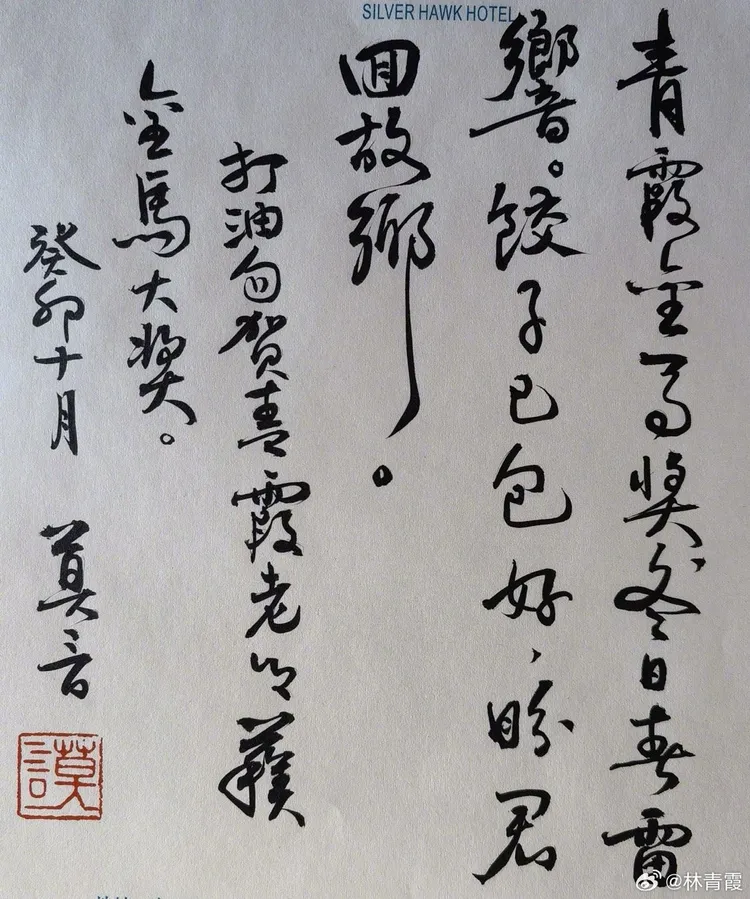 SILVER HAWK HOTEL
青霞金馬獎冬日春雷
響。餃子已包好、盼君
囬故鄉。
打油句賀青霞老师獲
金馬大獎。
癸卯十月 莫言
莫言
@林青霞